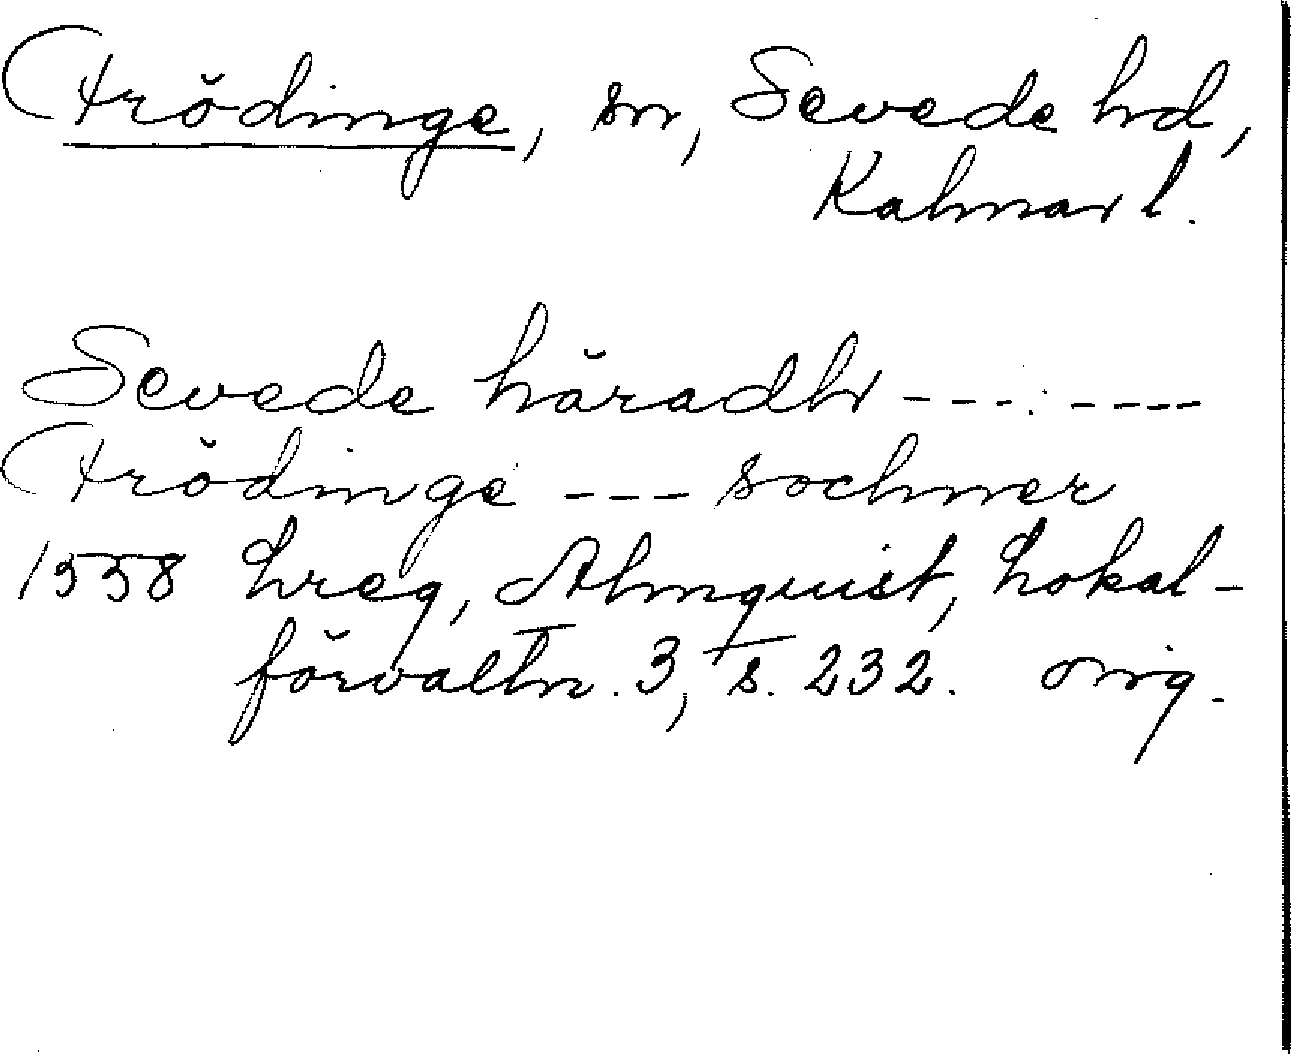 Frödinge, sn, Sevede hd,
Kalmar l.
Sevede häradh --- ----
Frödinge --- sochner
1558 Lreg, Almquist, Lokal-
förvaltn. 3, s. 232. orig.